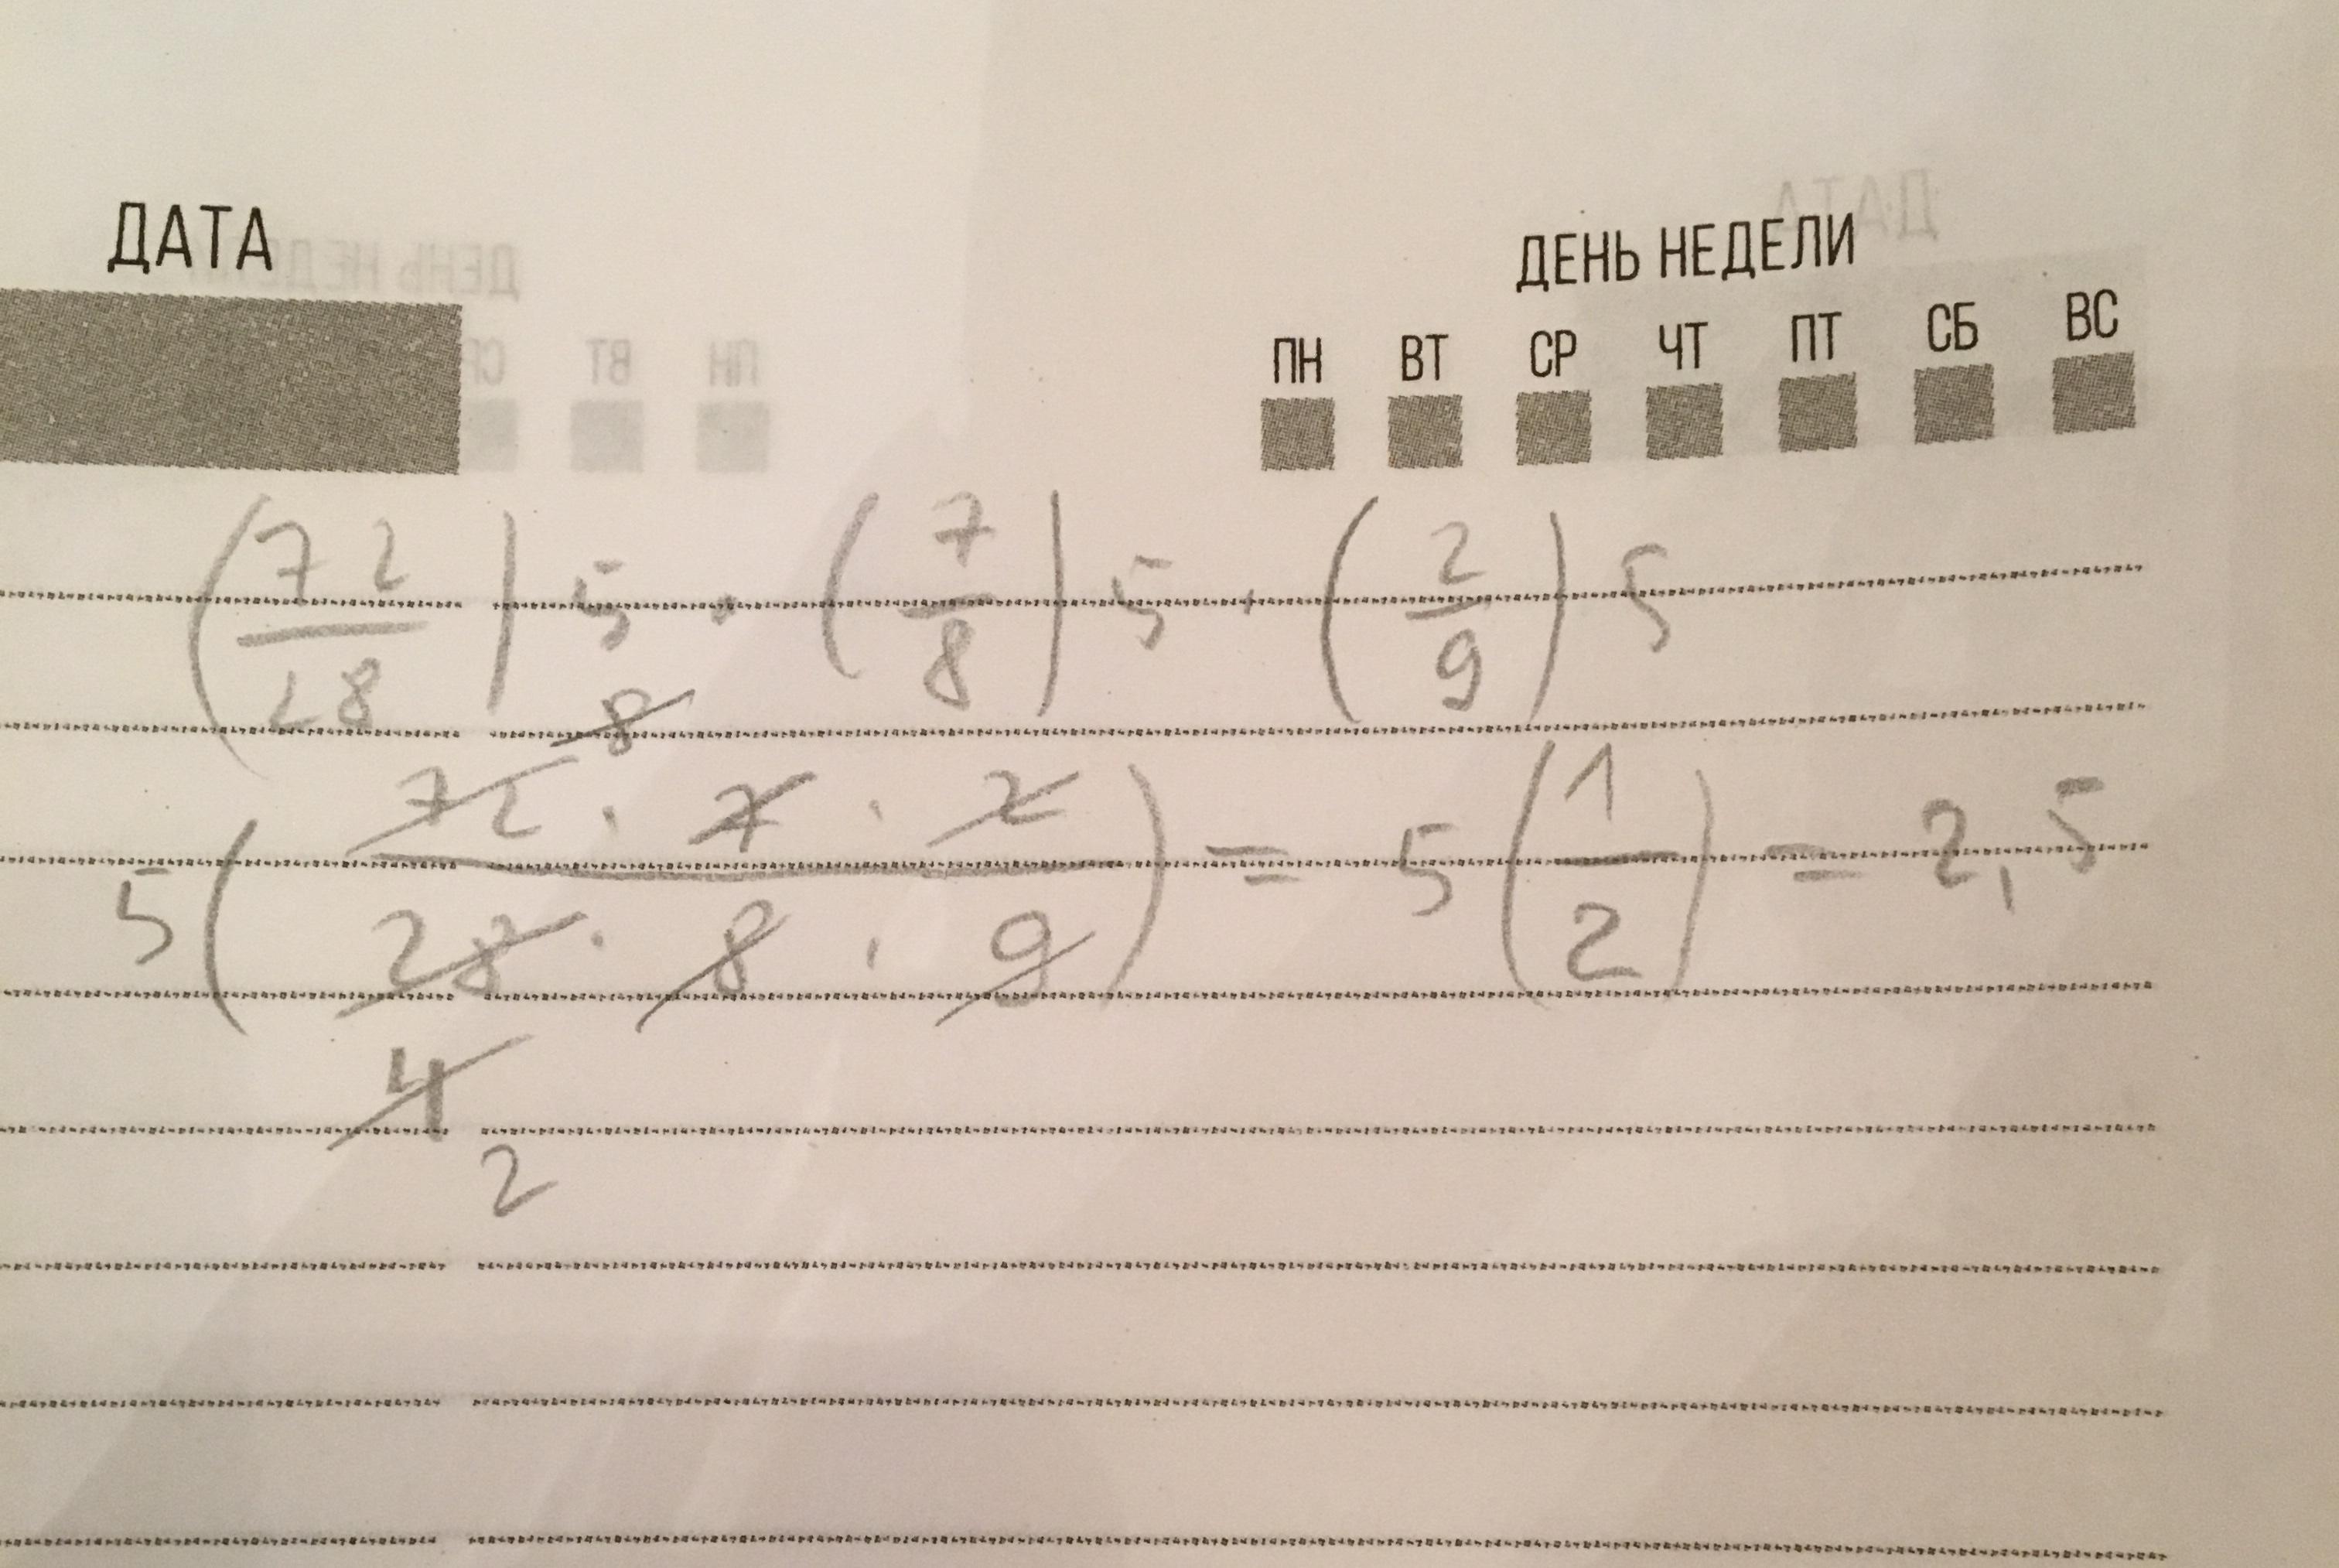 ДАТА
ДЕНЬ НЕДЕЛИ
ПН ВТ СР ЧТ ПТ СБ ВС
(72/28) 5 · (7/8) 5 · (2/9) 5
8
5 (72 · 7 · 2 / 28 · 8 · 9) = 5 (1/2) = 2,5
4
2